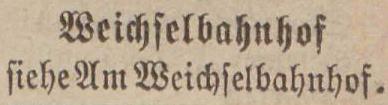 Weichselbahnhof
siehe Am Weichselbahnhof.